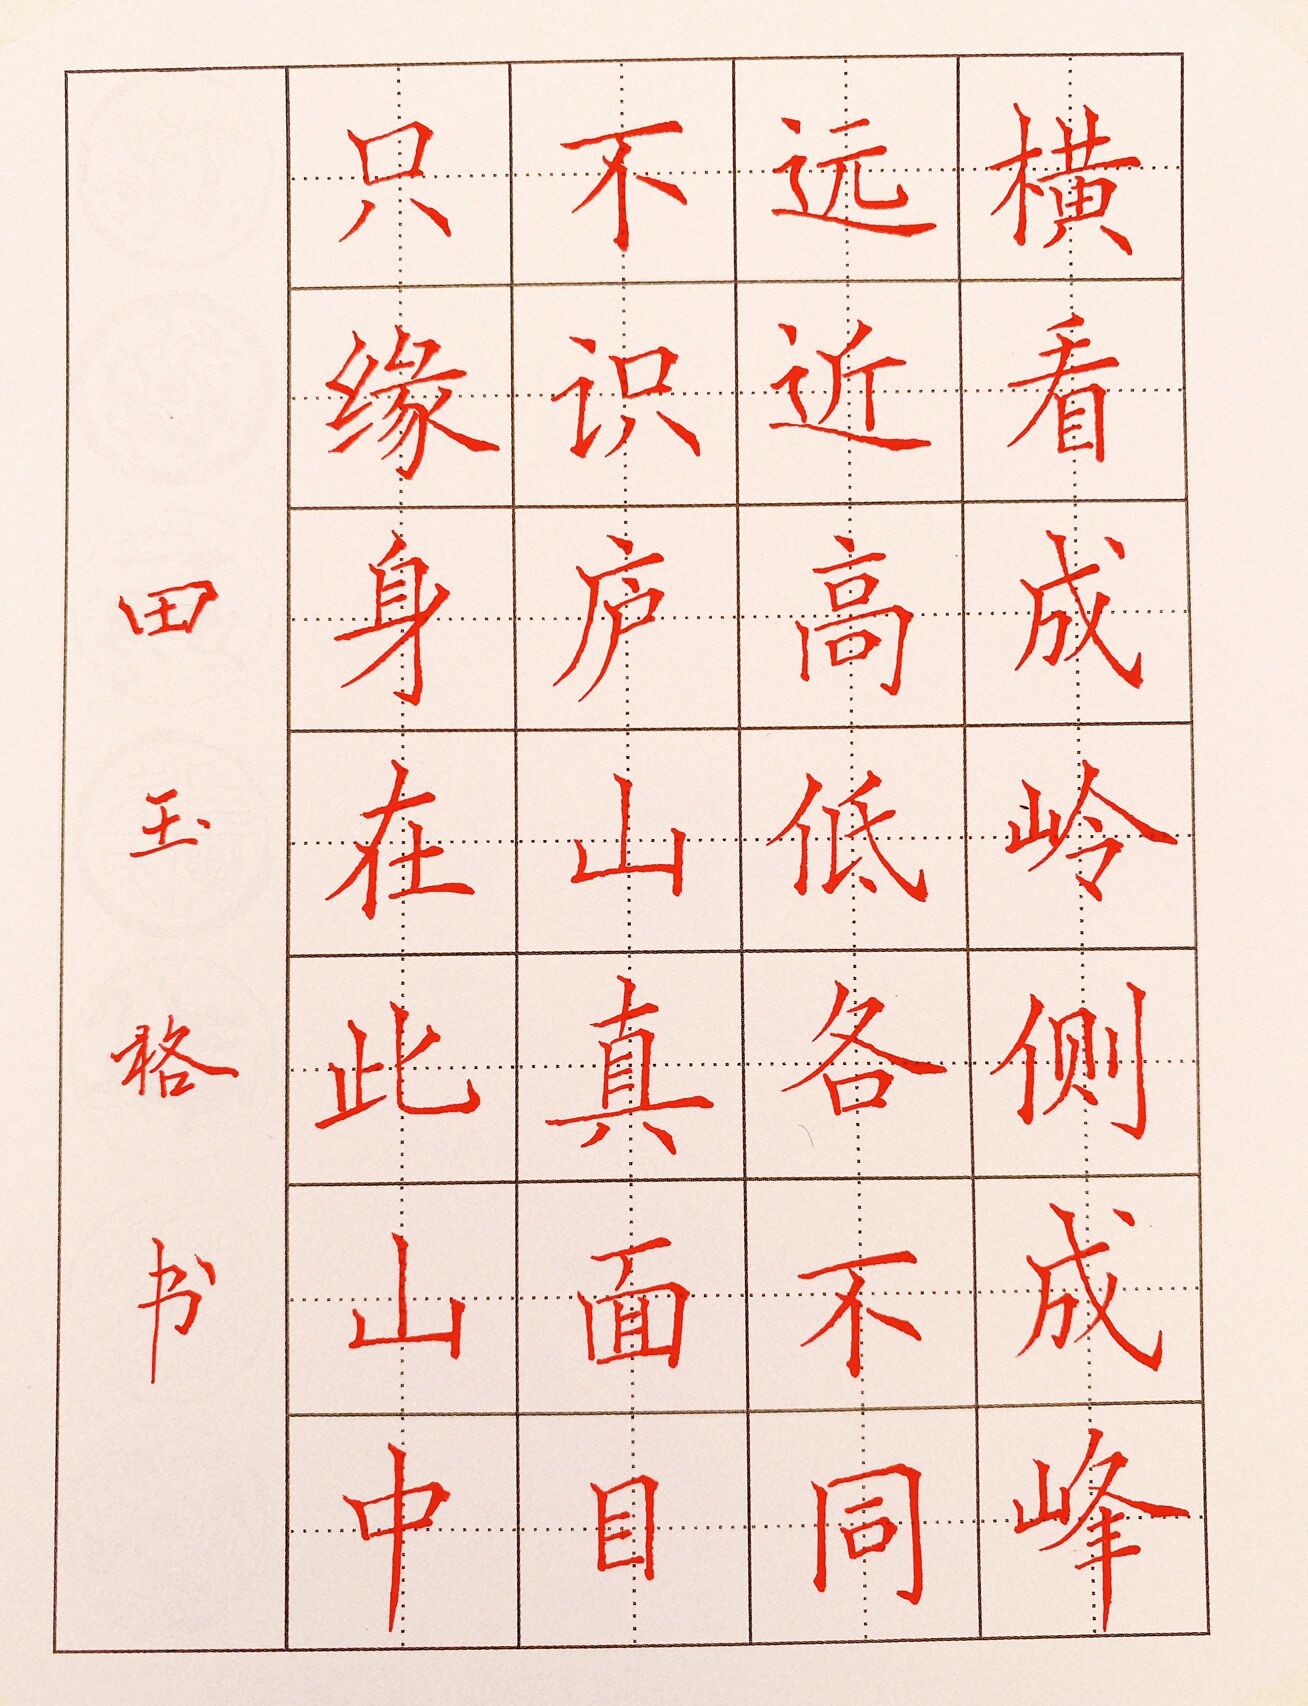 横看成岭侧成峰
远近高低各不同
不识庐山真面目
只缘身在此山中
田玉格书